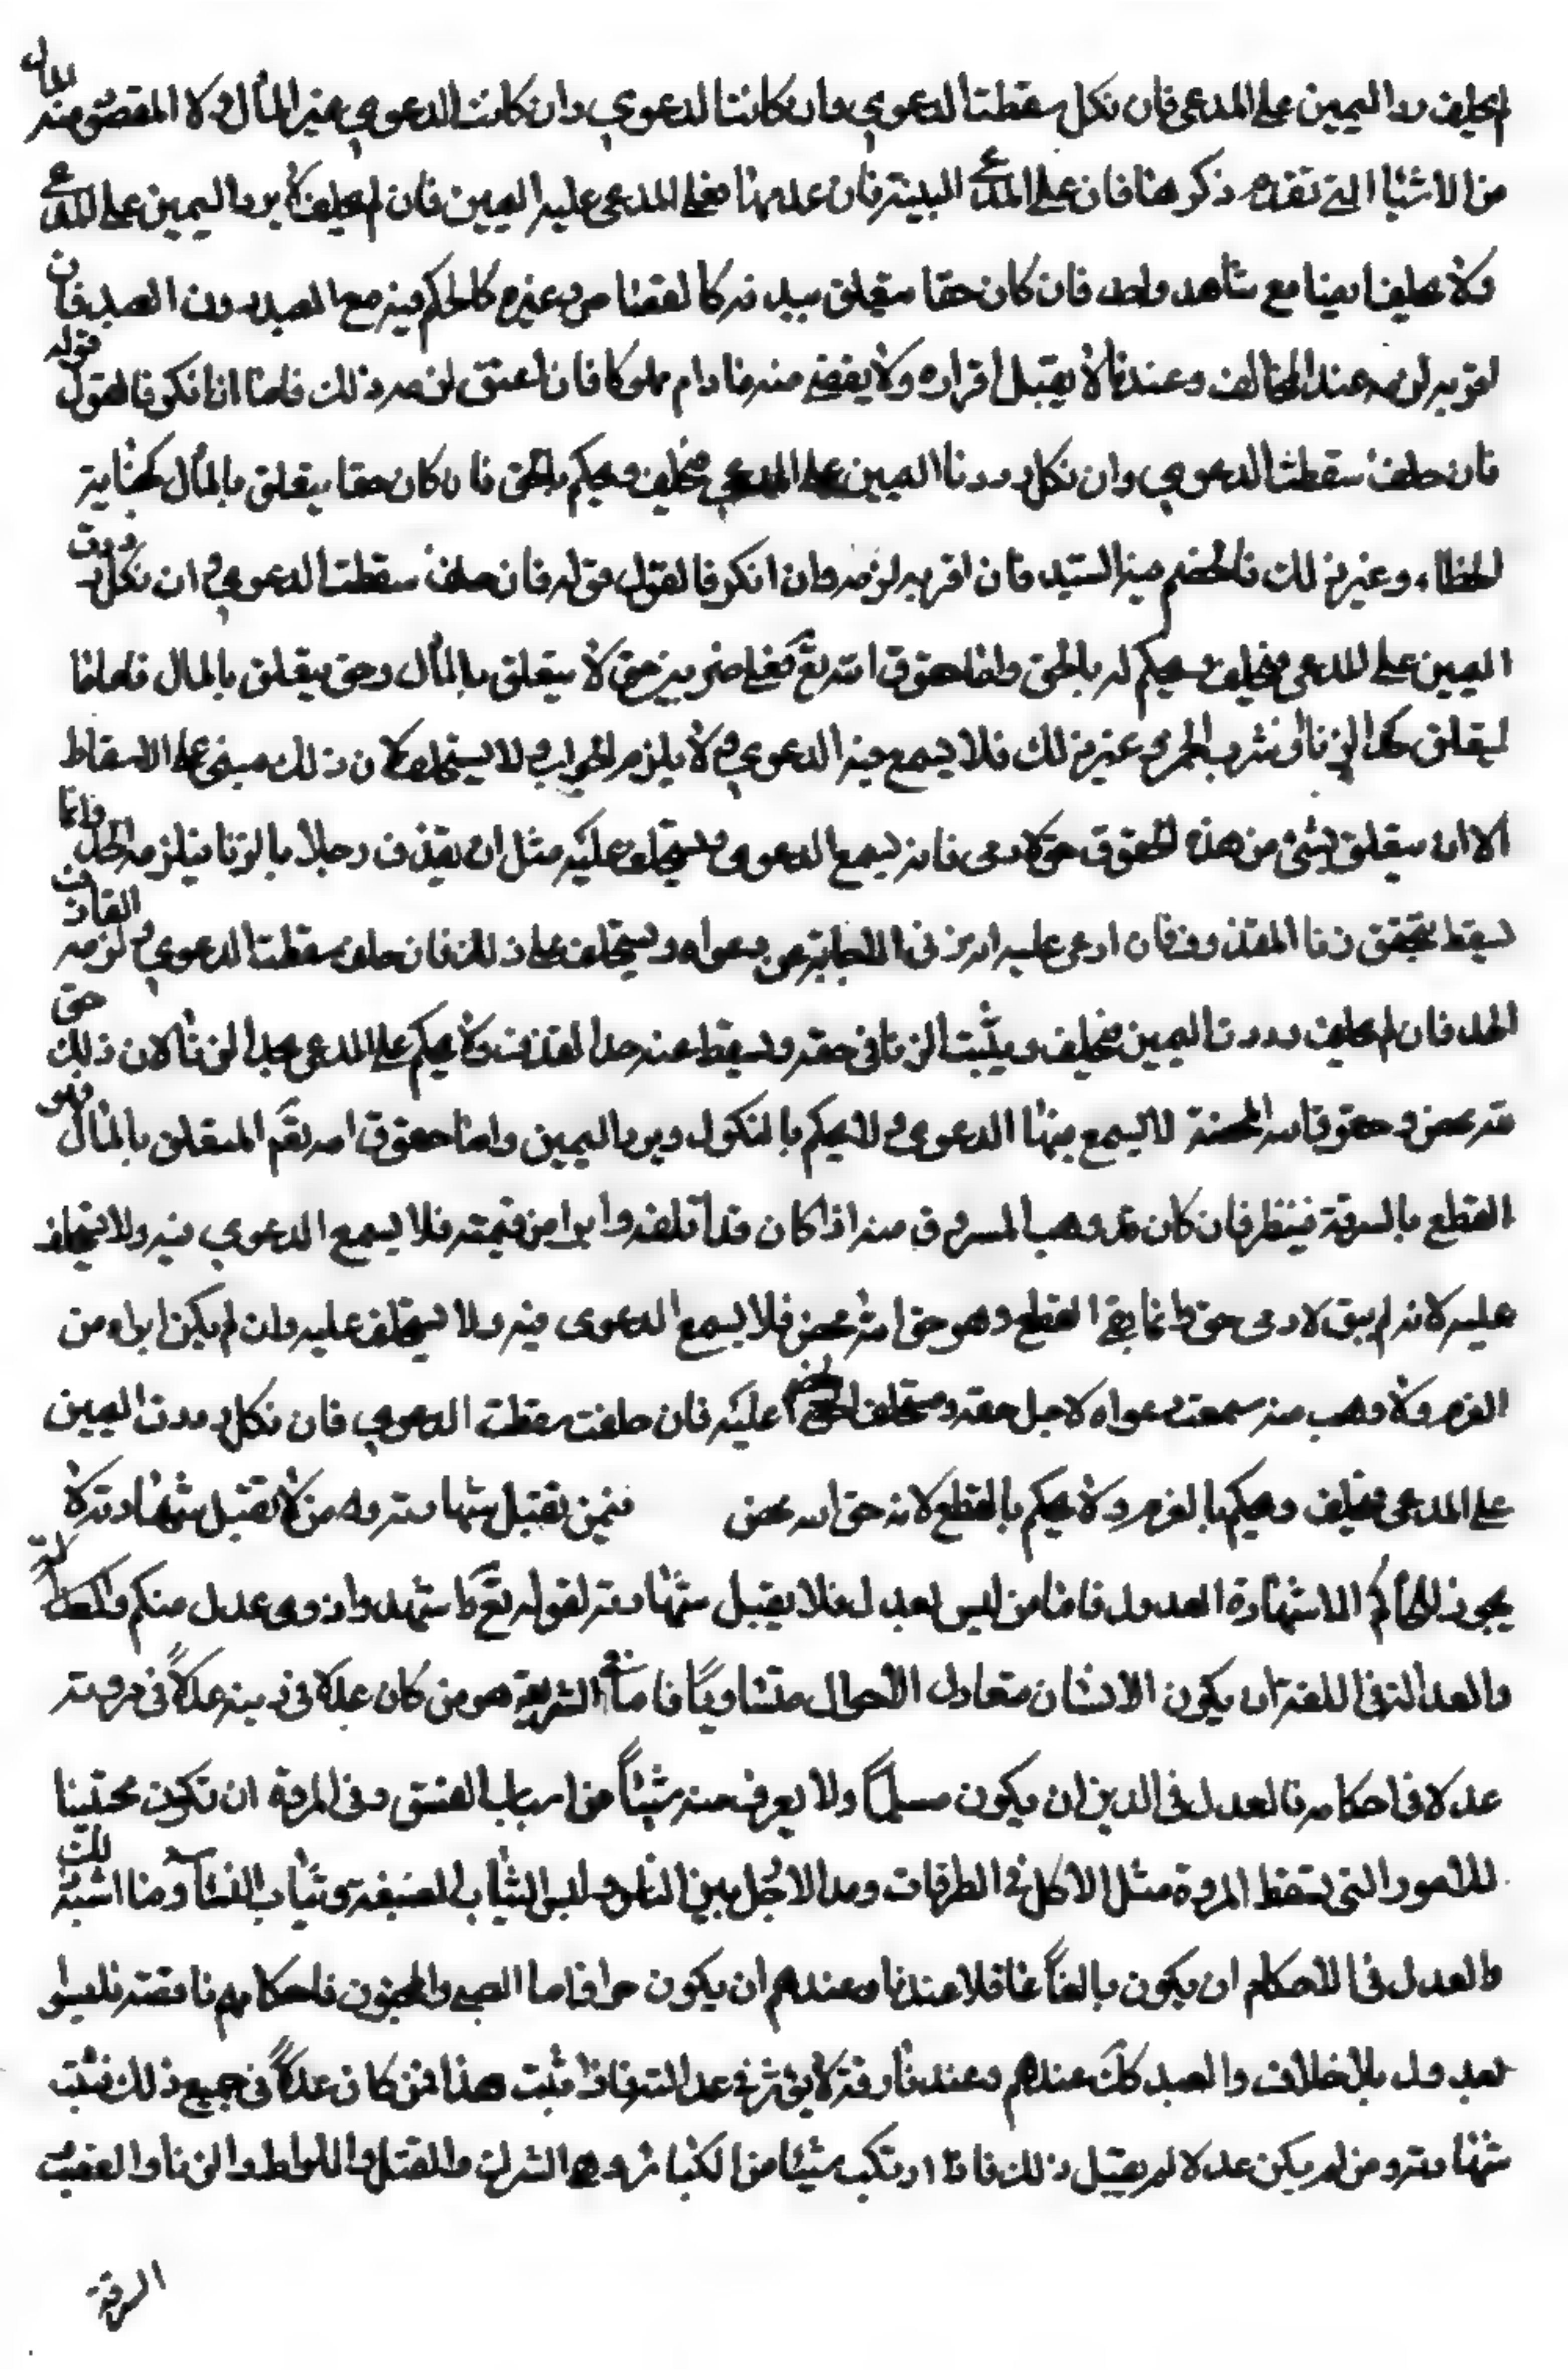 لم يحلف رد اليمين على المدعى فان نكل سقطت الدعوي وان كانت الدعوي وان كانت الدعوي غير المال ولا المقصود منه المال
من الاشيا التي تقدم ذكرهنا فان على المدعي البينة فان عدمها فعلى المدعى عليه اليمين فان لم يحلف يرد اليمين على المدعي
ولا يحلف ايضا مع شاهد واحد فان كان حقا متعلق ببيدنه كالقصاص وغيره كالحكم فيه مع العبد دون السيد فان
اقر به لزمه عند المخالف وعندنا لا يقبل اقراره ولا يقضى منه مادام مملوكا فان اعتق لزمه ذلك فاما ان انكر فالقول قوله
فان حلف سقطت الدعوي وان نكل رددنا اليمين على المدعي فيحلف ويحكم بالحق فان كان حقا يتعلق بالمال كجناية
الخطاء وغير ذلك فالخصم فيه السيد فان اقر به لزمه وان انكر فالقول قوله فان حلف سقطت الدعوي وان نكل ردت
اليمين على المدعى فيحلف ويحكم له بالحق واما حقوق الله تع فعلى ضربين حق لا يتعلق بالمال وحق يتعلق بالمال فاما ما
لم يتعلق كحد الزنا وشرب الخمر وغير ذلك فلا يسمع فيه الدعوي ولا يلزم الجواب ولا يستحلف لان ذلك مبني على الاسقاط
الا ان يتعلق بشئ من هذه الحقوق حق لادمى فانه يسمع الدعوى ويستحلف عليه مثل ان يقذف رجلا بالزنا فيلزمه الحد وانما
يسقط بتحقق زنا المقذوف فان ادعى عليه انه زنى الجابة عن دعواه ويستحلف على ذلك فان حلف سقطت الدعوي ولزمه القاذف
الحد فان لم يحلف رددنا اليمين فيحلف ويثبت الزنا في حقه ويسقط عنه حد القذف ولا يحكم على المدعى بحد الزنا لان ذلك حق
لله محض وحقوق الله المحضة لا يسمع فيها الدعوى ولا يحكم بالنكول ويرد اليمين واما حقوق الله تع المتعلق بالمال وهو
القطع بالسرقة فينظر فان كان قد وهب المسروق منه اذا كان قد اتلفه وابرا من قيمته فلا يسمع الدعوي فيه ولا يستحلف
عليه لانه لم يبق لادمى حق وانما بقى القطع وهو حق الله محض فلا يسمع الدعوى فيه ولا يستحلف عليه وان لم يكن ابراه من
الغرم ولا وهب منه سمعت دعواه لاجل حقه ويستحلف الخصم عليه فان حلفت سقطت الدعوي فان نكل رددت اليمين
على المدعى فيحلف ويحكم بالغرم ولا يحكم بالقطع لانه حق الله محض فيمن تقبل شهادته ومن لا تقبل شهادته لا
يجوز للحاكم الا شهادة العدول فاما من ليس بعدل فلا يقبل شهادته لقوله تع واشهدوا ذوى عدل منكم والعدالة
والعدالة في اللغة ان يكون الانسان متعادل الاحوال متساويًا فاما في الشريعة هو من كان عدلا في دينه عدلاً في مروته
عدلا في احكامه فالعدل في الدين ان يكون مسلماً ولا يعرف منه شيئاً من اسباب الفسق وفي المروة ان تكون مجتنبا
للامور التى تسقط المروة مثل الاكل في الطرقات ومد الارجل بين الناس ولبس الثياب المصبغة وثياب النسآ وما اشبه ذلك
والعدل في الاحكام ان يكون بالغاً عاقلا عندنا وعندهم ان يكون حرا فاما الصبي والمجنون فاحكامهم ناقصة فليسوا
بعدول بلا خلاف والعبد كك عندهم وعندنا رقه لا يؤثر في عدالته فاذا ثبت هذا فمن كان عدلاً في جميع ذلك قبلت
شهادته ومن لم يكن عدلا لم يقبل ذلك فاذا ارتكب شيئا من الكبائر وهو الشرك والقتل واللواط والزنا والغصب
السرقة